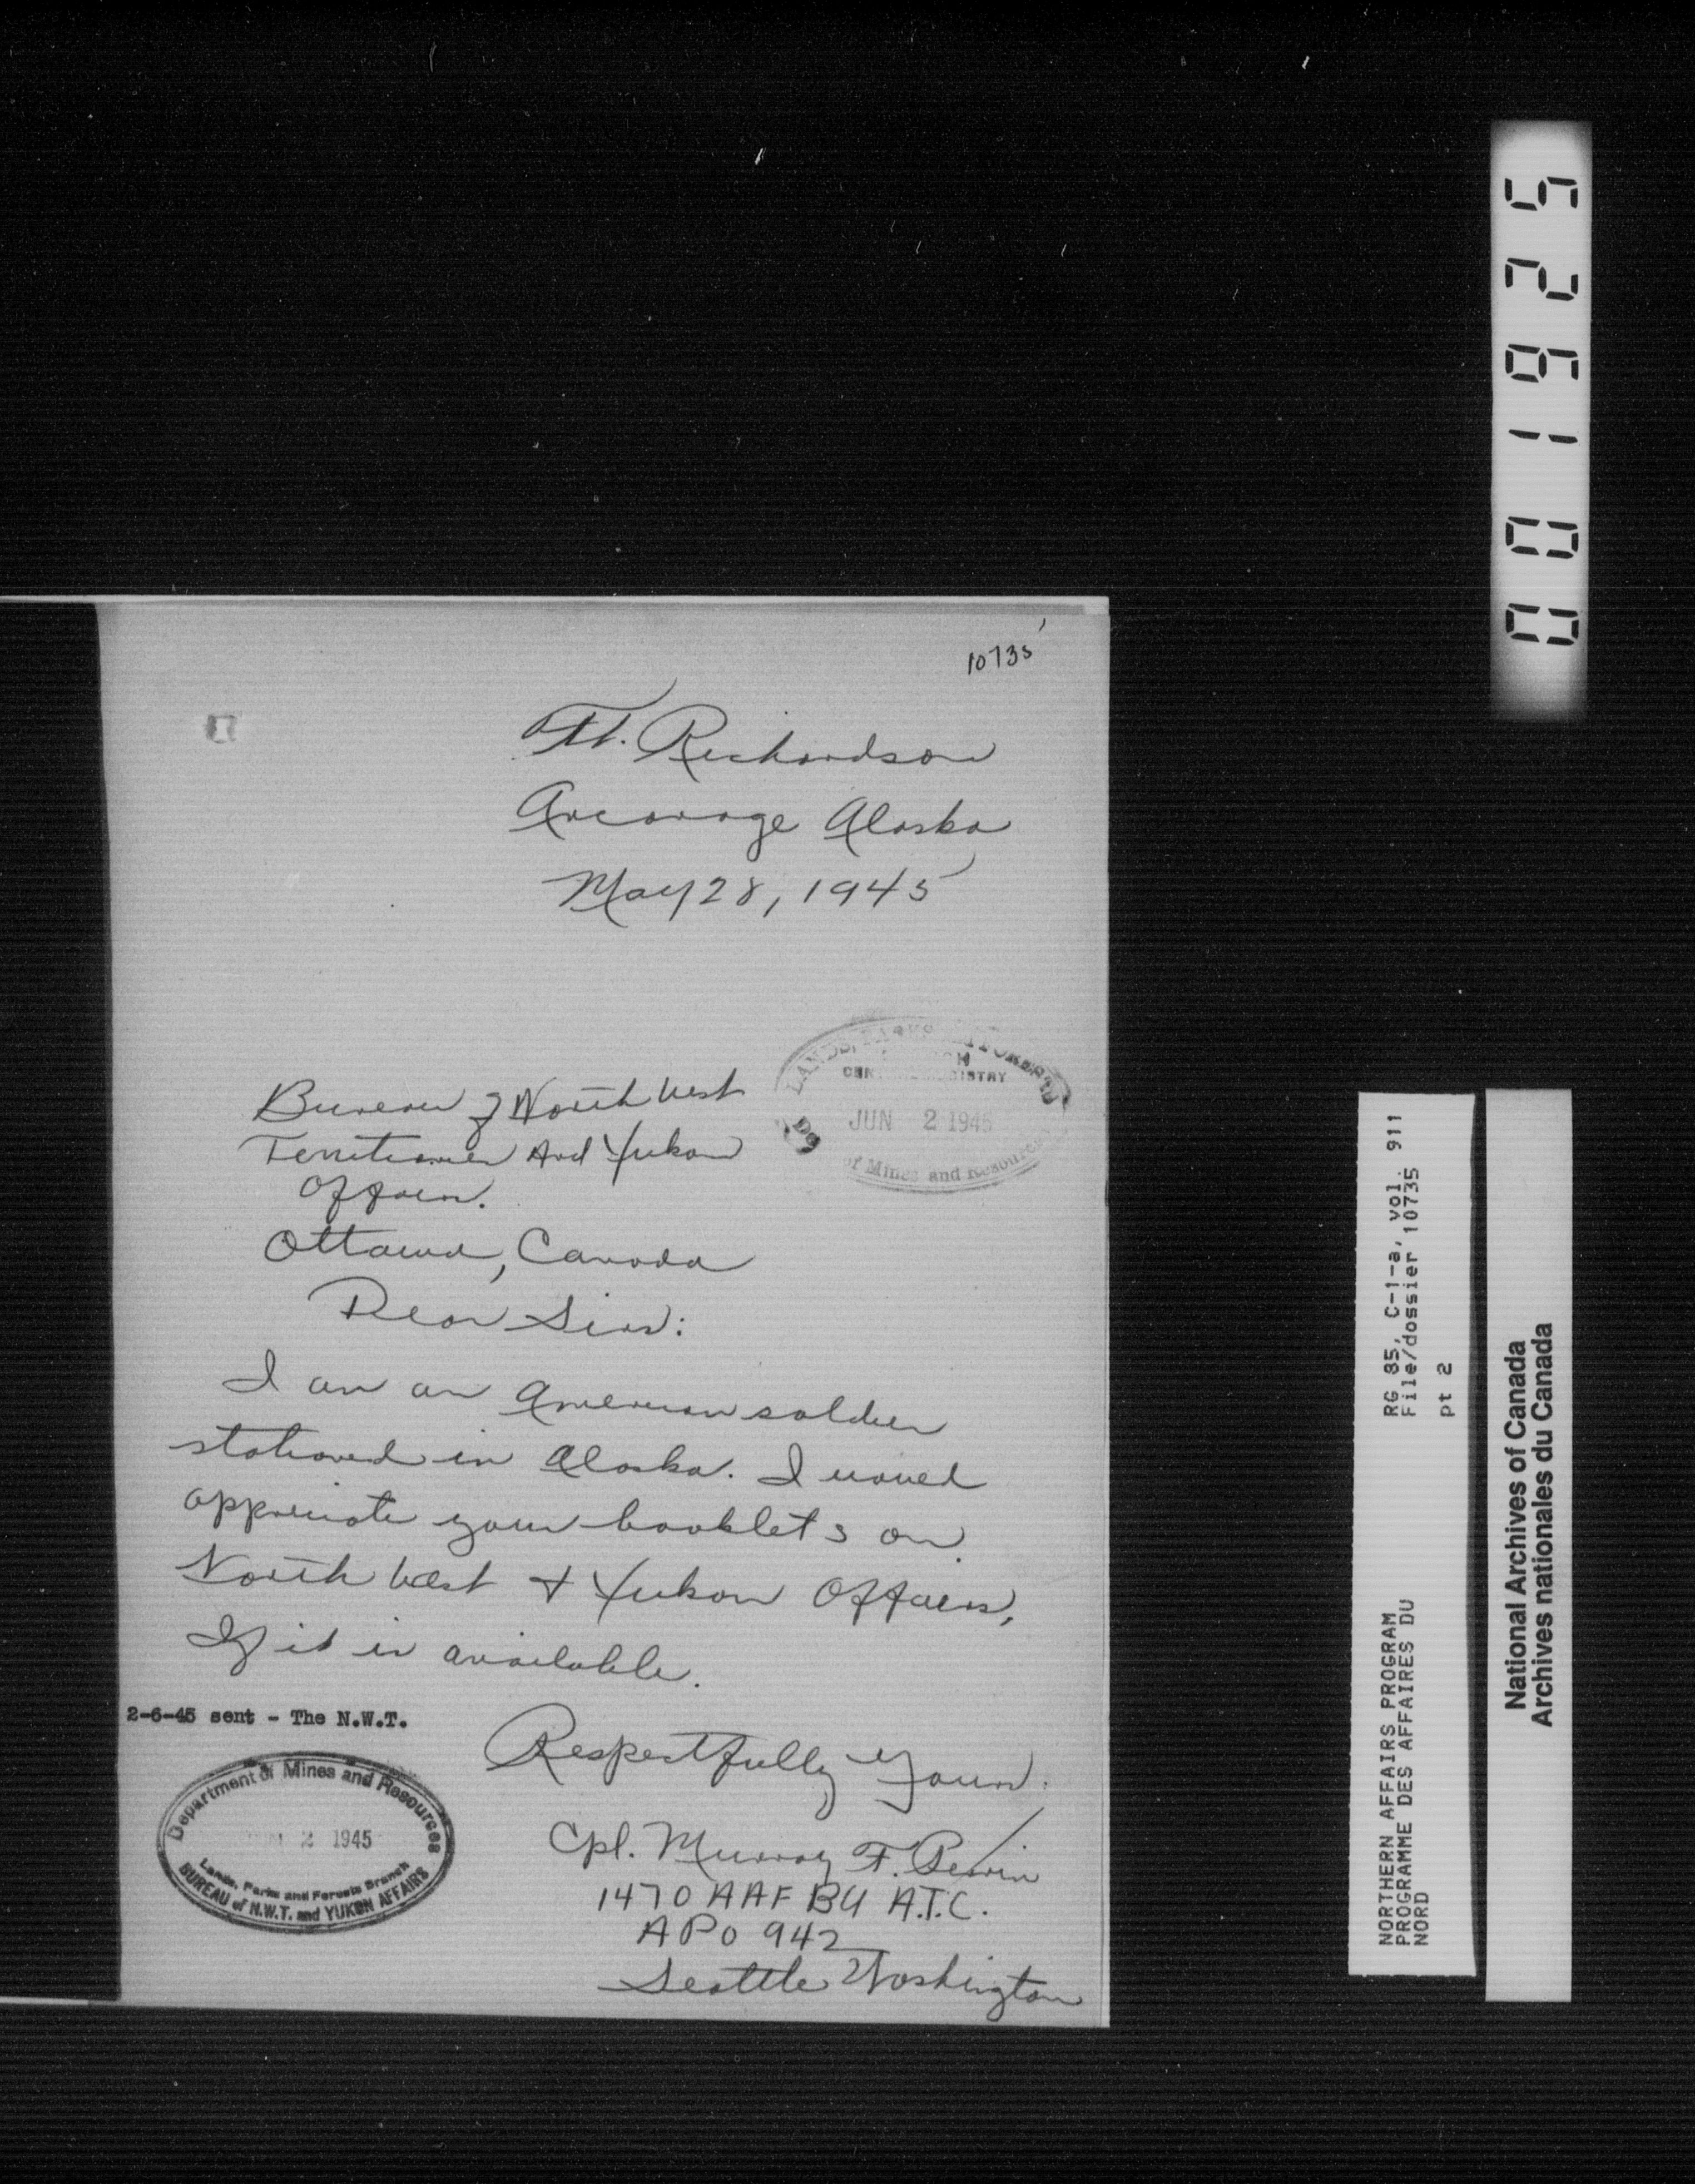 10735
Ft. Richardson
Ancorage Alaska
May 28, 1945
LANDS, PARKS
CENTRAL REGISTRY
JUN 2 1945
of Mines and Resources
Bureau of North West
Territories And Yukon
Affairs.
Ottawa, Canada
Dear Sirs:
I am an American soldier
stationed in Alaska. I would
appreciate your booklets on
North West & Yukon Affairs,
If it is available.
2-6-45 sent - The N.W.T.
Respectfully Yours.
Department of Mines and Resources
2 1945
Lands, Parks and Forests Branch
BUREAU of N.W.T. and YUKON AFFAIRS
Cpl. Murray F.
1470 AAF BU A.T.C.
APO 942
Seattle Washington
001925
RG 85, C-1-a, vol. 911
File/dossier 10735
pt 2
NORTHERN AFFAIRS PROGRAM
PROGRAMME DES AFFAIRES DU
NORD
National Archives of Canada
Archives nationales du Canada